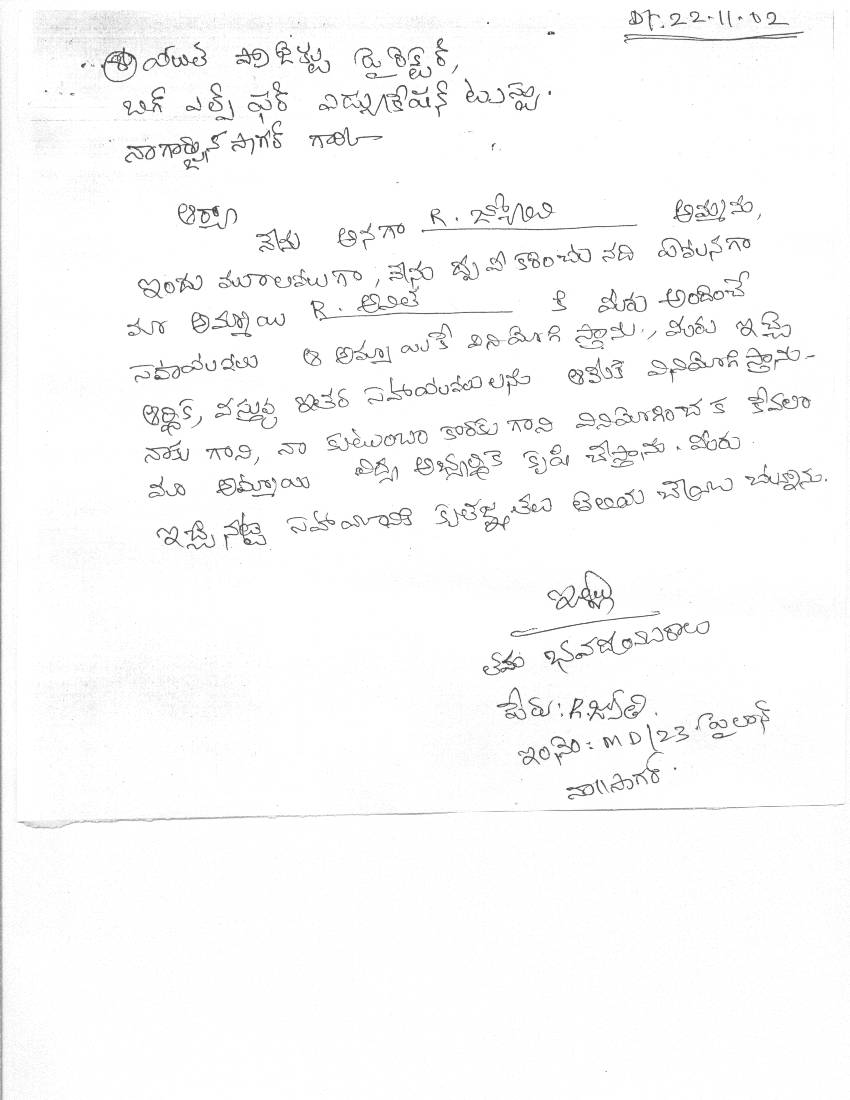 DT. 22.11.02
ప్రాజెక్టు డైరెక్టర్,
బిగ్ హెల్ప్ ఫర్ ఎడ్యుకేషన్ ట్రస్టు.
నాగార్జున సాగర్ గారికి
ఆర్యా
నేను అనగా R. జ్యోతి అమ్మను,
ఇందు మూలముగా, నేను ధృవీకరించునది ఏమనగా
మా అమ్మాయి R. అనిత కి మీరు అందించే
సహాయంలు ఆ అమ్మాయికే వినియోగిస్తాను., మీరు ఇచ్చే
ఆర్థిక, వస్తువు ఇతర సహాయంలను ఆమెకే వినియోగిస్తాను.
నాకు గాని, నా కుటుంబం కొరకు గాని వినియోగించక కేవలం
మా అమ్మాయి విద్య అభివృద్ధికె కృషి చేస్తాను. మీరు
ఇచ్చినట్టి సహాయానికి కృతజ్ఞతలు తెలియ చేయుచున్నాను.
ఇట్లు
తమ భవదీయురాలు
పేరు: R. జ్యోతి.
ఇం.నెం: MD/23. పైలాన్
నా||సాగర్.